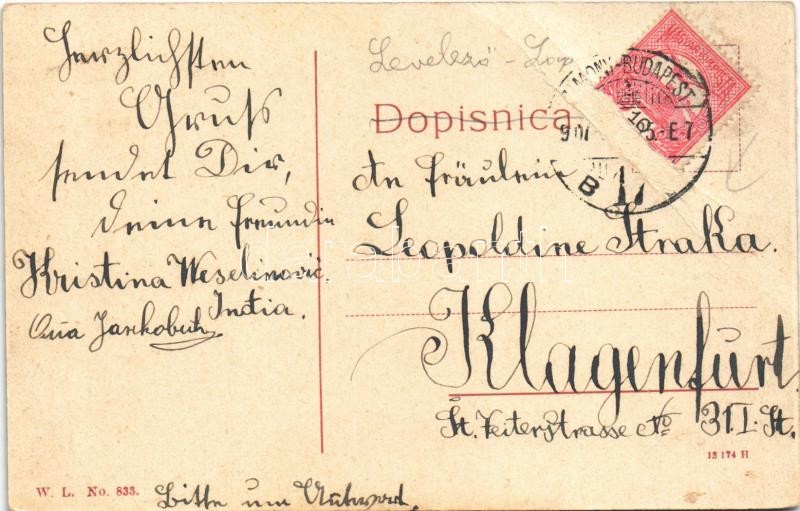 Herzlichsten
Gruß
sendet Dir,
deine Freundin
Kristina Weselinović,
India.
Levelező-Lap
Dopisnica
ZIMONY-BUDAPEST
B
An Fräulein
Leopoldine Straka.
Klagenfurt
St. Veiterstrasse No 31 I. St.
13 174 H
W. L. No. 833.
Bitte um Antwort.
darabanth